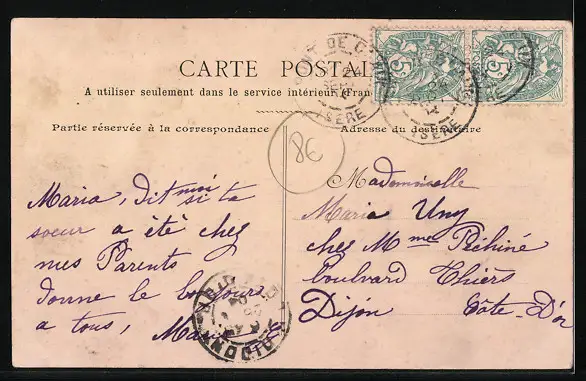 CARTE POSTALE
A utiliser seulement dans le service intérieur (France
Partie réservée à la correspondance
Adresse du destinataire
8€
Maria, dit moi si ta
soeur a été chez
mes Parents
donne le bonjour
a tous, Maria
Mademoiselle
Maria Uny
chez Mme Péchiné
boulvard Thiers
Dijon Côte-D'or
5c
5c
ISÈRE
ISÈRE
DIJON